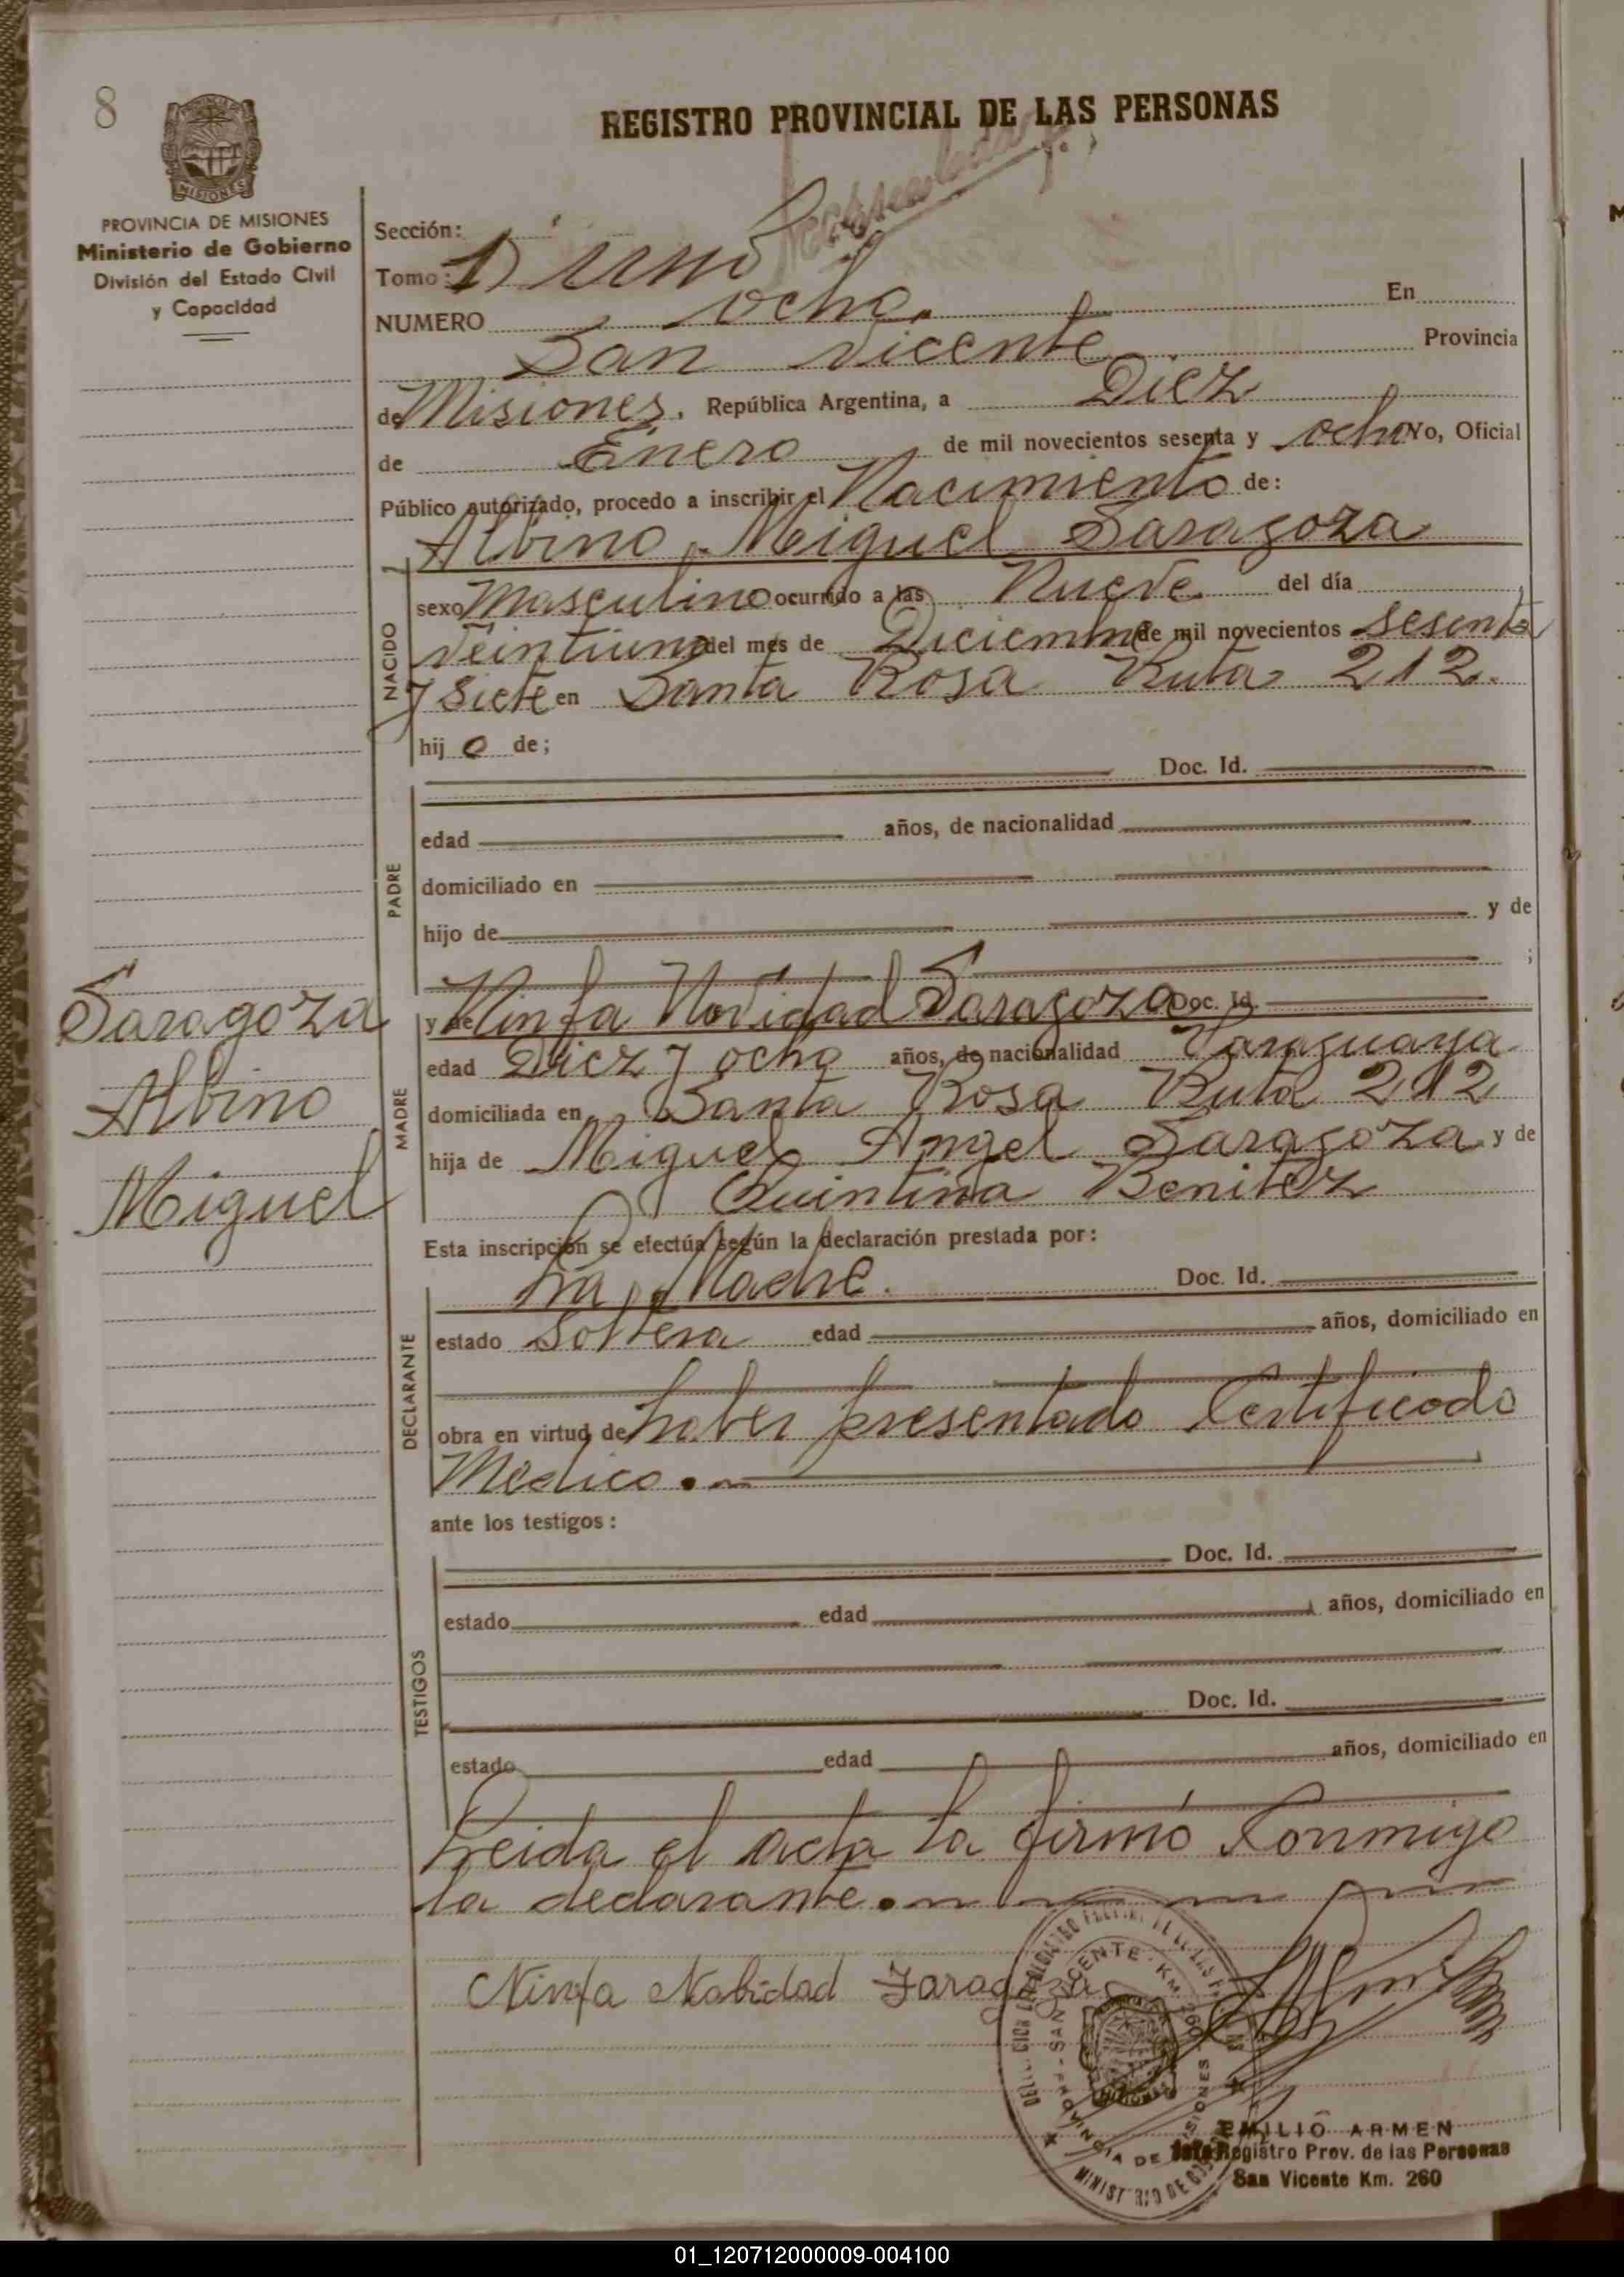 8
REGISTRO PROVINCIAL DE LAS PERSONAS
MISIONES
PROVINCIA DE MISIONES
Ministerio de Gobierno
División del Estado Civil
y Capacidad
Sección:
Tomo: 1)
NUMERO ocho. En
San Vicente Provincia
de Misiones, República Argentina, a Diez
de Enero de mil novecientos sesenta y ocho Yo, Oficial
Público autorizado, procedo a inscribir el Nacimiento de:
Albino Miguel Saragoza
NACIDO
sexo Masculino ocurrido a las Nueve del día
veintiuno del mes de Diciembre de mil novecientos sesenta
y Siete en Santa Rosa Ruta 212.
hij o de;
Doc. Id.
PADRE
edad años, de nacionalidad
domiciliado en
hijo de y de
;
Saragoza
Albino
Miguel
MADRE
y de Ninfa Navidad Saragoza Doc. Id.
edad Diez y ocho años, de nacionalidad Paraguaya
domiciliada en Santa Rosa Ruta 212
hija de Miguel Angel Saragoza y de
Quintina Benitez
Esta inscripción se efectúa según la declaración prestada por:
DECLARANTE
La Madre. Doc. Id.
estado Soltera edad años, domiciliado en
obra en virtud de haber presentado Certificado
Medico.
ante los testigos:
TESTIGOS
Doc. Id.
estado edad años, domiciliado en
Doc. Id.
estado edad años, domiciliado en
Leida el acta la firmó Conmigo
la declarante.
Ninfa Nabidad Zaragoza
SAN VICENTE - KM. 260
PROVINCIA DE MISIONES
EMILIO ARMEN
Jefe Registro Prov. de las Personas
San Vicente Km. 260
01_120712000009-004100